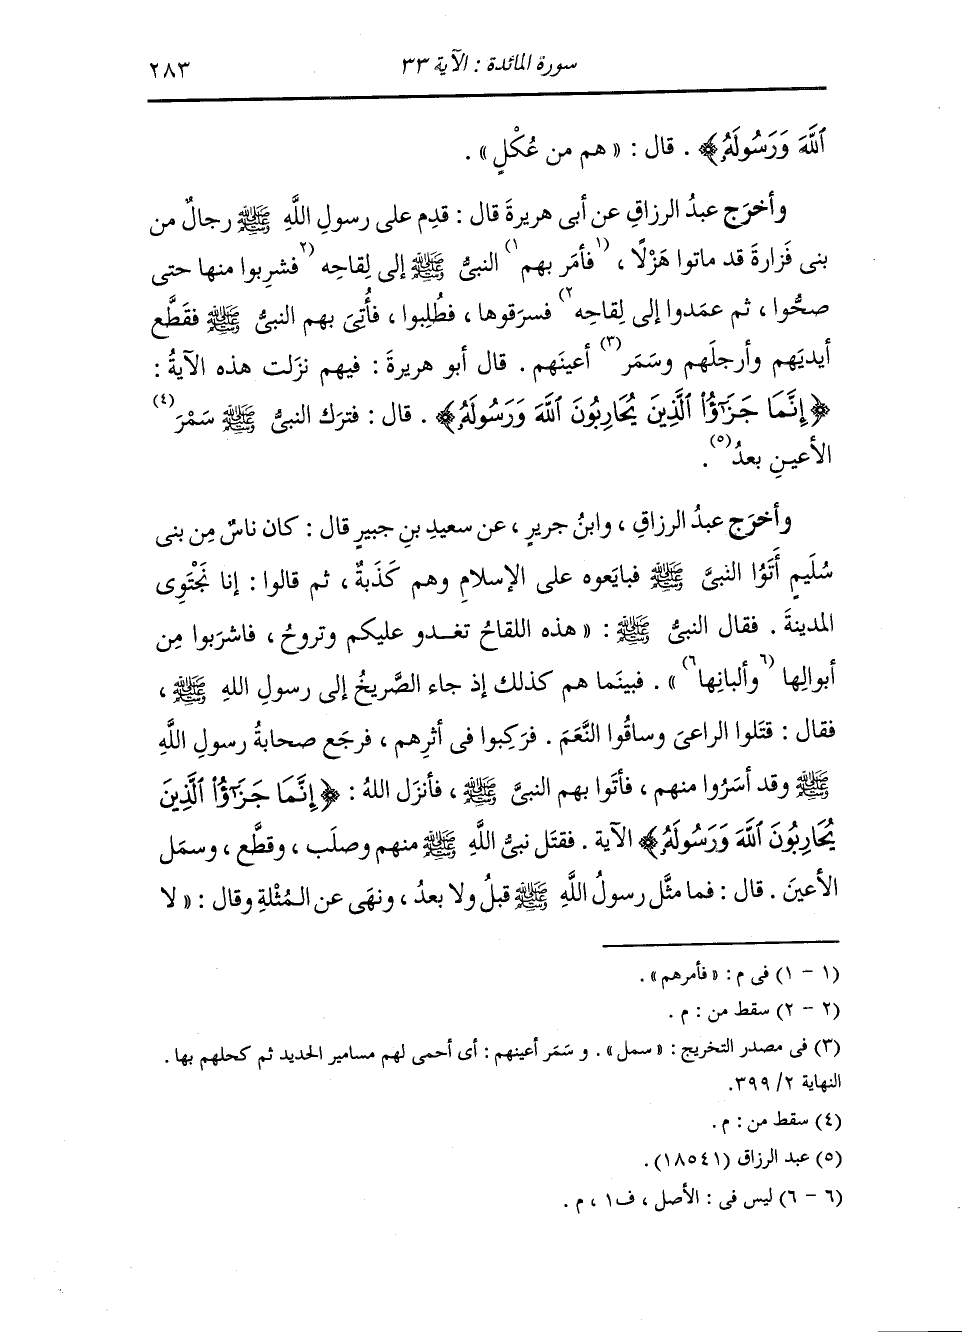 سورة المائدة : الآية ٣٣ ٢٨٣
ٱللَّهَ وَرَسُولَهُۥ﴾ . قال : « هم من عُكْلٍ » .
وأخرَج عبدُ الرزاقِ عن أبى هريرةَ قال : قدِم على رسولِ اللَّهِ ﷺ رجالٌ من
بنى فَزارةَ قد ماتوا هَزْلًا ، (١فأمَر بهم١) النبىُّ ﷺ إلى لِقاحِه (٢فشرِبوا منها حتى
صحُّوا ، ثم عمَدوا إلى لِقاحِه٢) فسرَقوها ، فطُلِبوا ، فأُتِىَ بهم النبىُّ ﷺ فقَطَّع
أيديَهم وأرجلَهم وسَمَر(٣) أعينَهم . قال أبو هريرةَ : فيهم نزَلت هذه الآيةُ :
﴿إِنَّمَا جَزَٰٓؤُا۟ ٱلَّذِينَ يُحَارِبُونَ ٱللَّهَ وَرَسُولَهُۥ﴾ . قال : فترَك النبىُّ ﷺ سَمْرَ(٤)
الأعينِ بعدُ(٥) .
وأخرَج عبدُ الرزاقِ ، وابنُ جريرٍ ، عن سعيدِ بنِ جبيرٍ قال : كان ناسٌ مِن بنى
سُلَيمٍ أَتَوُا النبىَّ ﷺ فبايَعوه على الإسلامِ وهم كَذَبةٌ ، ثم قالوا : إنا نَجْتَوِى
المدينةَ . فقال النبىُّ ﷺ : « هذه اللقاحُ تغدو عليكم وتروحُ ، فاشرَبوا مِن
أبوالِها (٦وألبانِها٦) » . فبينَما هم كذلك إذ جاء الصَّريخُ إلى رسولِ اللهِ ﷺ ،
فقال : قتَلوا الراعىَ وساقُوا النَّعَمَ . فرَكِبوا فى أثرِهم ، فرجَع صحابةُ رسولِ اللَّهِ
ﷺ وقد أسَرُوا منهم ، فأتَوا بهم النبىَّ ﷺ ، فأنزَل اللهُ : ﴿إِنَّمَا جَزَٰٓؤُا۟ ٱلَّذِينَ
يُحَارِبُونَ ٱللَّهَ وَرَسُولَهُۥ﴾ الآية . فقتَل نبىُّ اللَّهِ ﷺ منهم وصلَب ، وقطَّع ، وسمَل
الأعينَ . قال : فما مثَّل رسولُ اللَّهِ ﷺ قبلُ ولا بعدُ ، ونهَى عن المُثْلةِ وقال : « لا
(١ - ١) فى م : « فأمرهم » .
(٢ - ٢) سقط من : م .
(٣) فى مصدر التخريج : « سمل » . و سَمَر أعينهم : أى أحمى لهم مسامير الحديد ثم كحلهم بها .
النهاية ٢/ ٣٩٩.
(٤) سقط من : م .
(٥) عبد الرزاق (١٨٥٤١) .
(٦ - ٦) ليس فى : الأصل ، ف١ ، م .